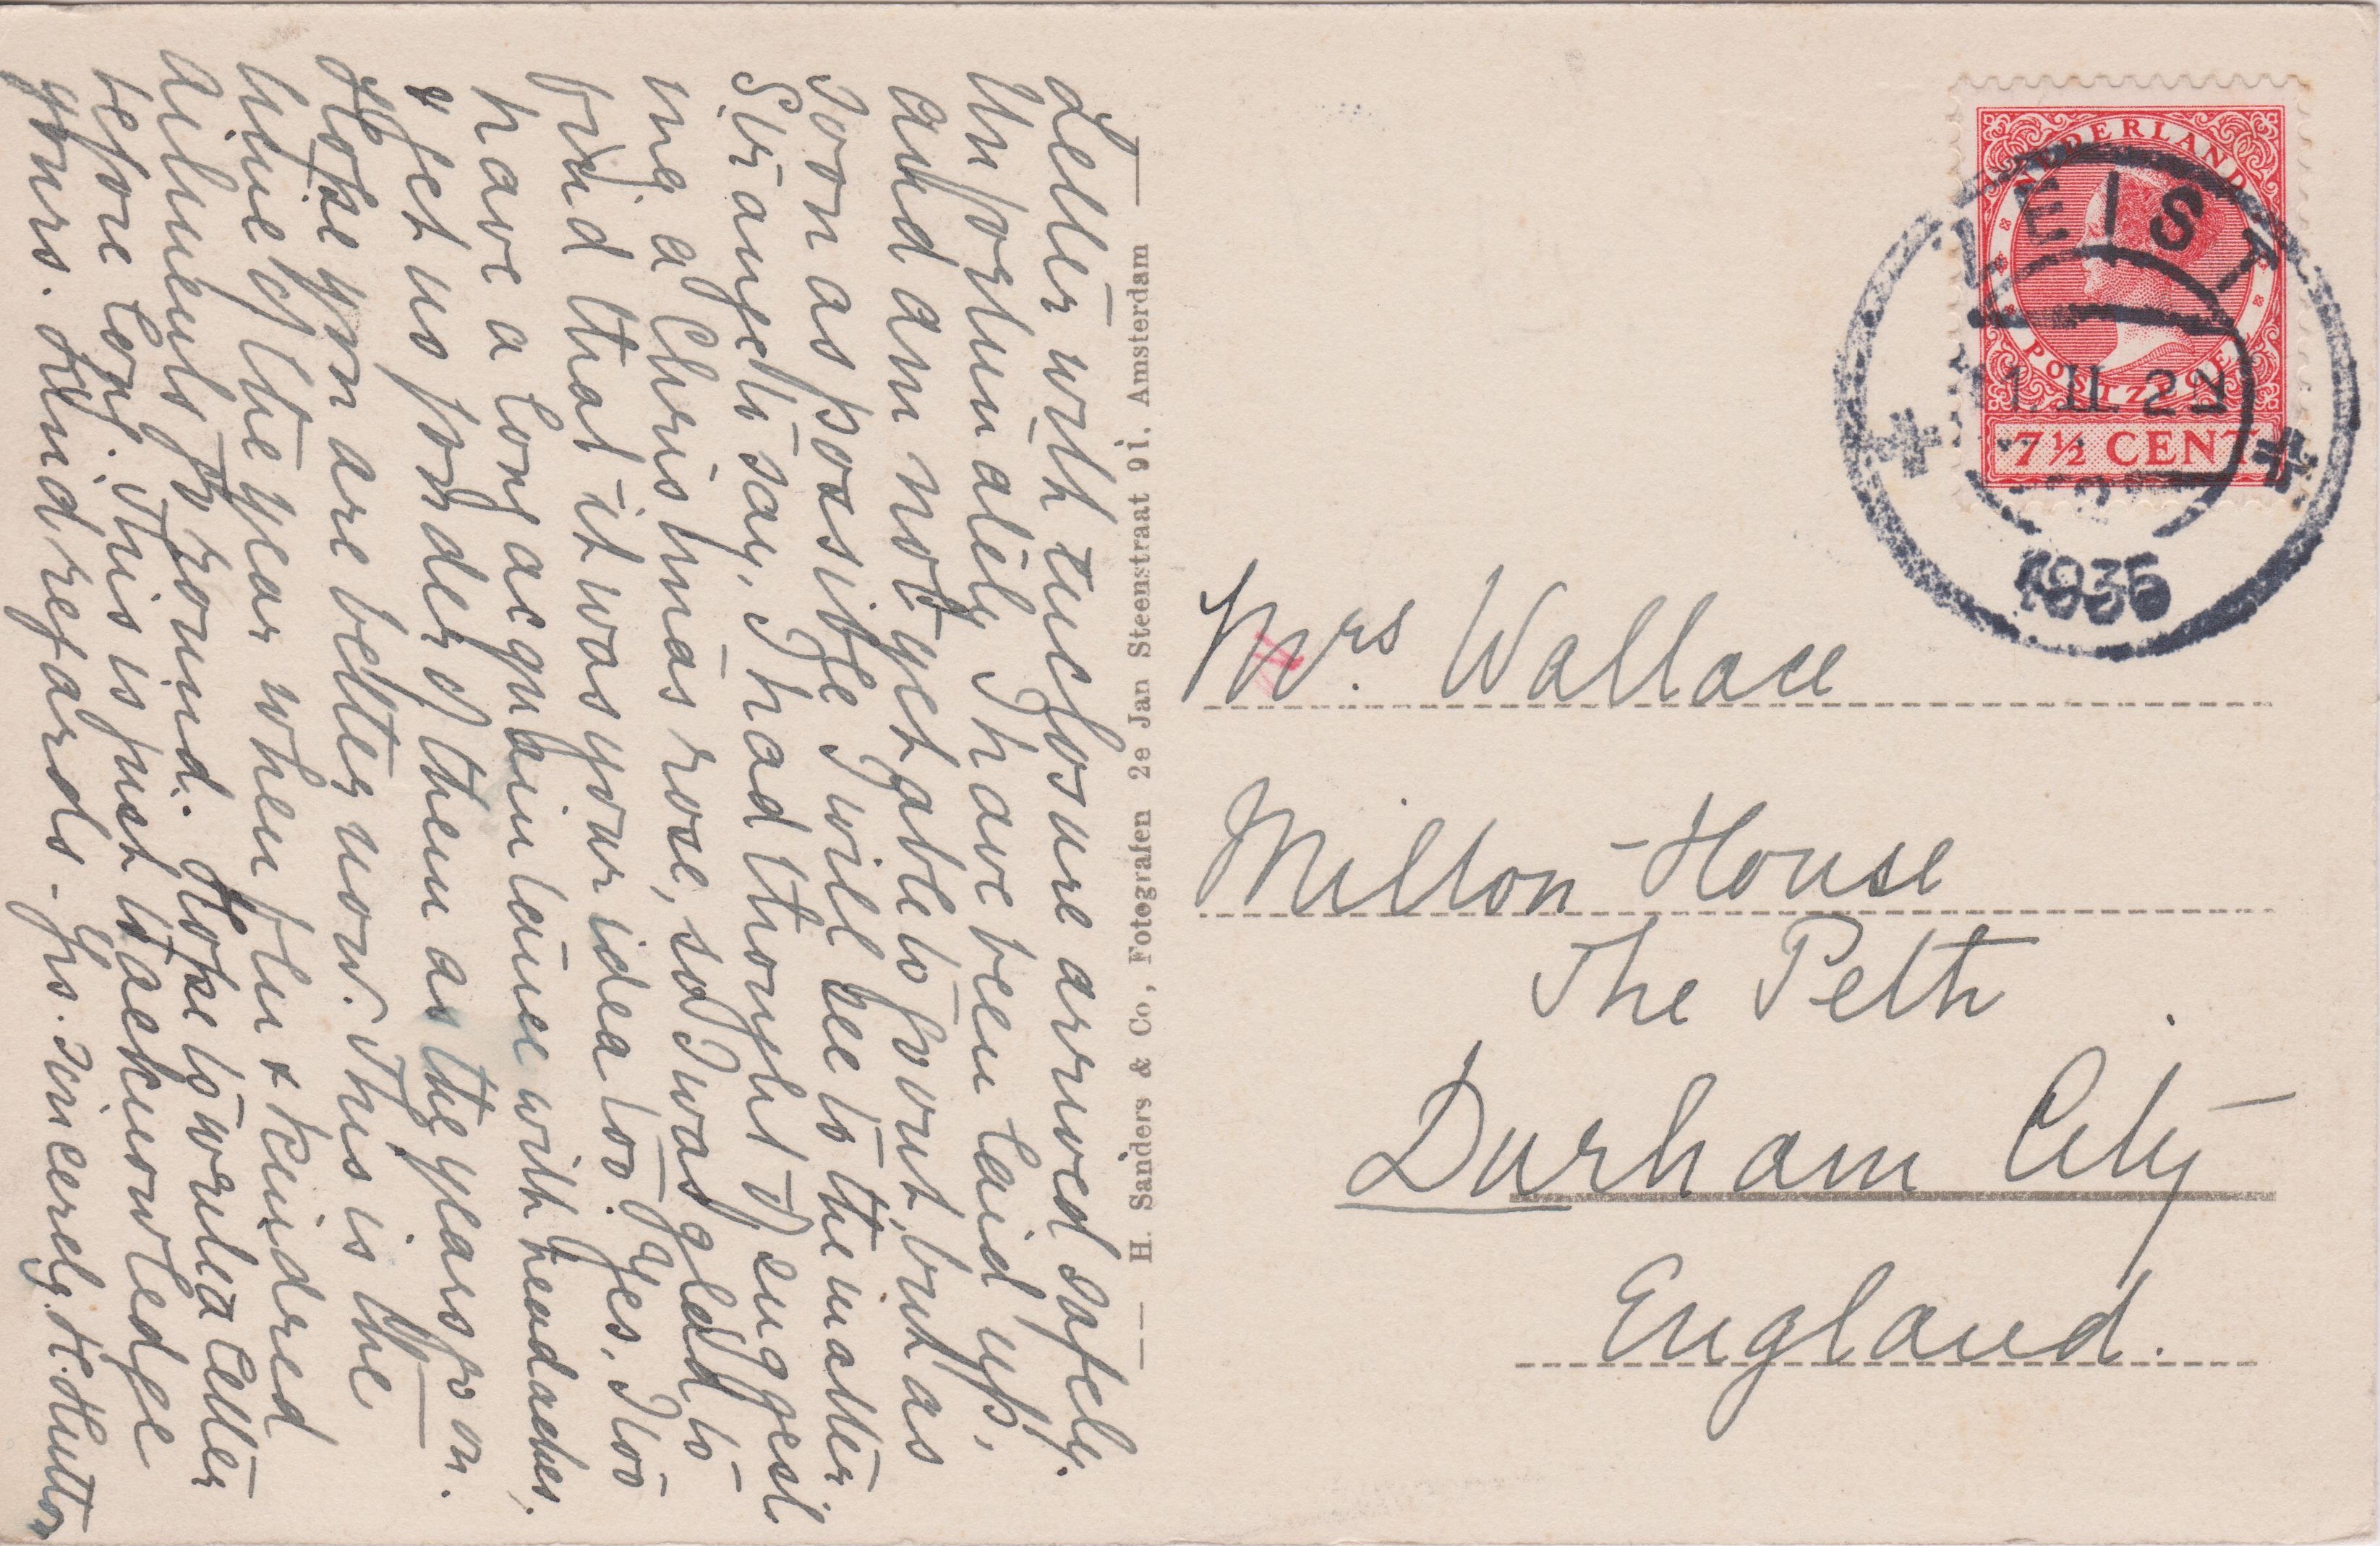 Letter with enclosure arrived safely.
Unfortunately I have been laid up,
and am not yet able to go out, but as
soon as possible I will see to the matter.
Strange to say, I had thought of suggest-
ing a Christmas rose, so I was glad to
find that it was your idea too. Yes, I too
have a long acquaintance with headaches.
& get no fonder of them as the years go on.
Hope you are better now. This is the
time of the year when flu & kindred
ailments go round. Hope to write a letter
before long. This is just to acknowledge
yours. Kind regards - Yrs. sincerely. H. Hutton
H. Sanders & Co, Fotografen 2e Jan Steenstraat 91. Amsterdam
NEDERLAND
POSTZEGEL
7½ CENT
ZEIST
1. II. 2
1936
Mrs. Wallace
Milton House
The Peth
Durham City
England.